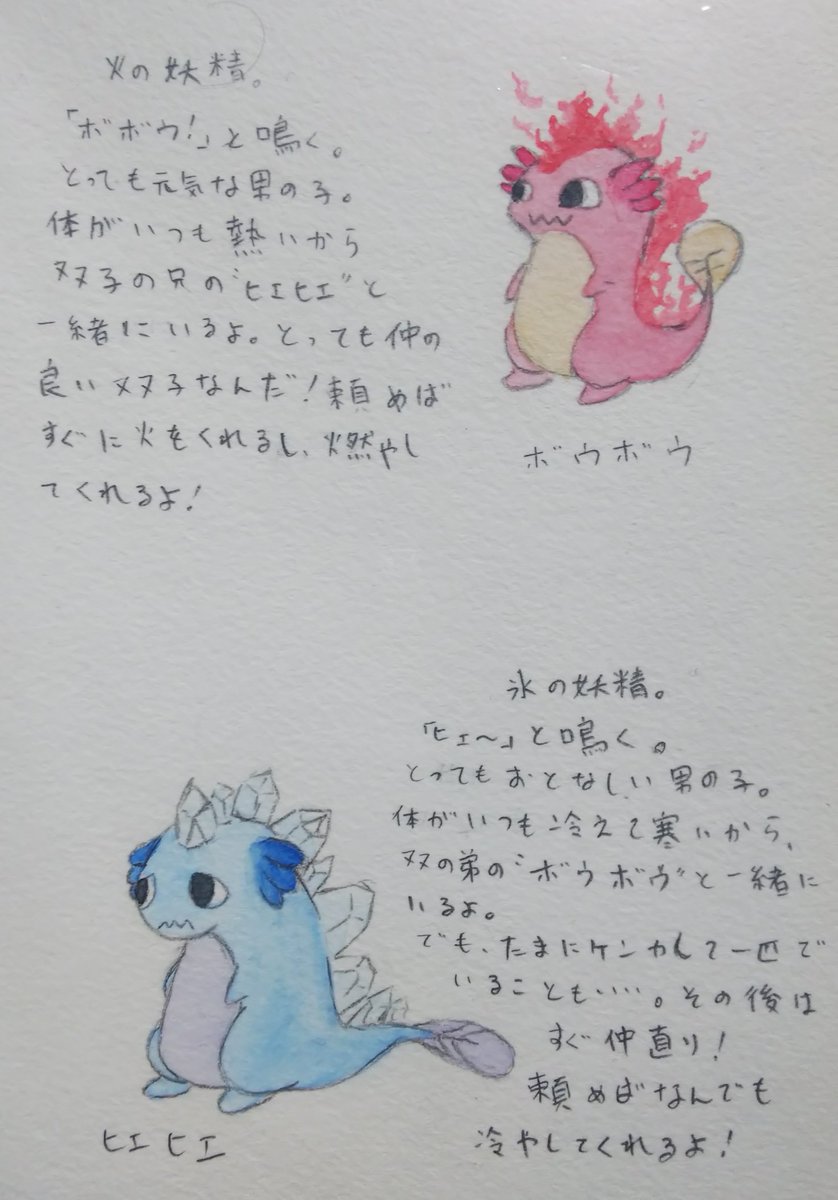 火の妖精。
「ボボウ!」と鳴く。
とっても元気な男の子。
体がいつも熱いから
双子の兄の"ヒエヒエ"と
一緒にいるよ。とっても仲の
良い双子なんだ!頼めば
すぐに火をくれるし、燃やし
てくれるよ!
ボウボウ
氷の妖精。
「ヒェ〜」と鳴く。
とってもおとなしい男の子。
体がいつも冷えて寒いから、
双の弟の"ボウボウ"と一緒に
いるよ。
でも、たまにケンカして一匹で
いることも……。その後は
すぐ仲直り!
頼めばなんでも
冷やしてくれるよ!
ヒエヒエ